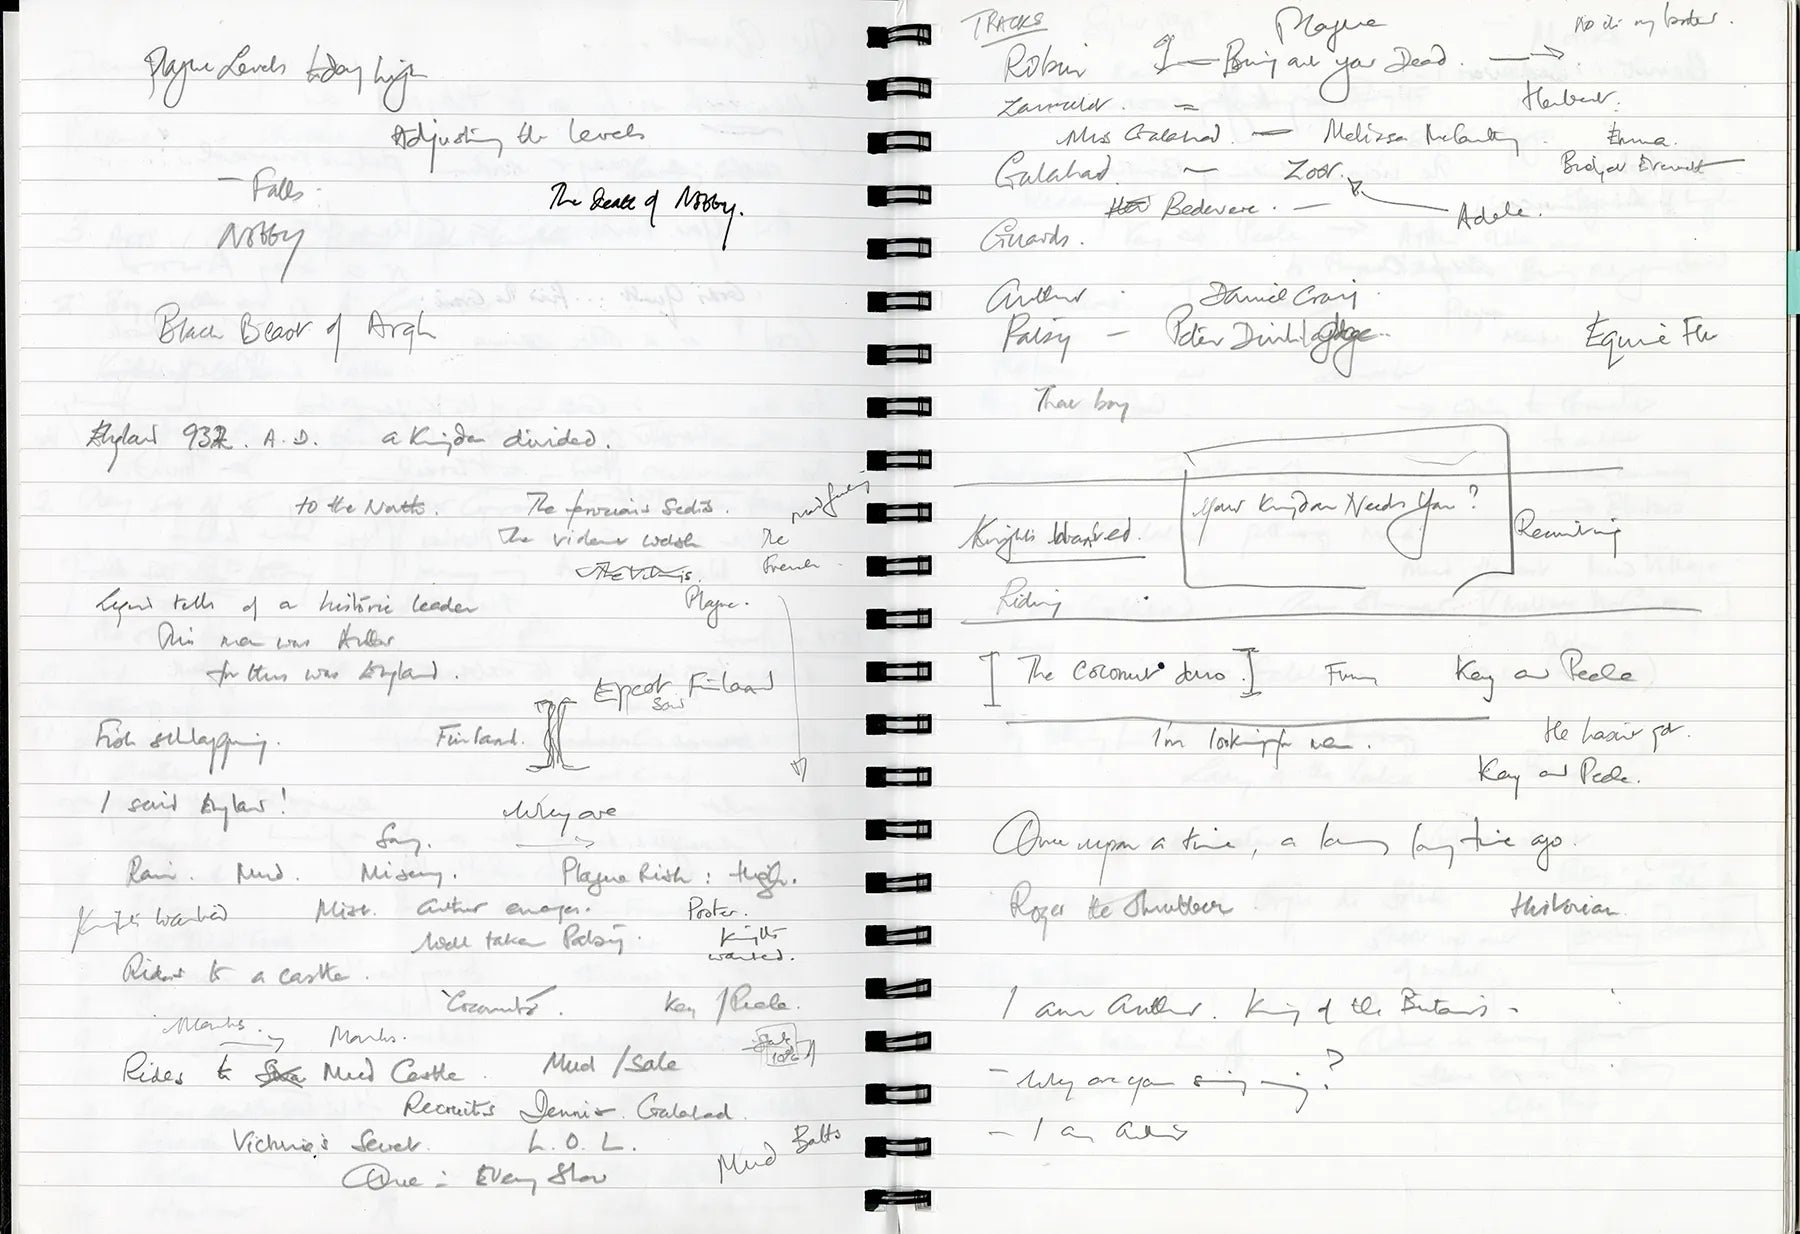 Plague Levels today high
Adjusting the levels
- Falls.
The Death of Nobby.
NOBBY
Black Beast of Argh
England 932. A.D. a Kingdom divided.
to the North. The ferocious Scots.
The violent Welsh
The French.
The Vikings.
Plague.
Legend tells of a historic leader
This man was Arthur
for this was England.
Epcot Finland
Fish schlapping. Finland.
I said England!
Why are
Song.
Rain. Mud. Misery. Plague Risk: High.
Knights wanted Mist. Arthur emerges. Poster.
Well taken Patsy. Knights wanted.
Rides to a castle.
'Coconuts'. Key / Peele.
Monks. Monks.
Sale 10%
Rides to Mud Castle. Mud / Sale
Recruits Dennis. Galahad.
Victoria's Secret. L.O.L.
Mud Baths
One : Every Show
TRACKS Plague
Robin - Bring out your Dead.
Lancelot. - Herbert.
Mrs Galahad - Melissa McCarthy Emma.
Galahad. - Zoot.
Bedevere. - Adele.
Guards.
Arthur. Daniel Craig.
Patsy - Peter Dinklage.. Equine Flu
That boy
Your Kingdom Needs You?
Knights Wanted Recruiting
Riding
[The Coconut duo.] Funny Key and Peele
I'm looking for men. He hasn't got.
Key and Peele.
Once upon a time, a long long time ago.
Roger the Shrubber Historian.
I am Arthur. King of the Britons -
- Why are you singing?
- I am Arthur